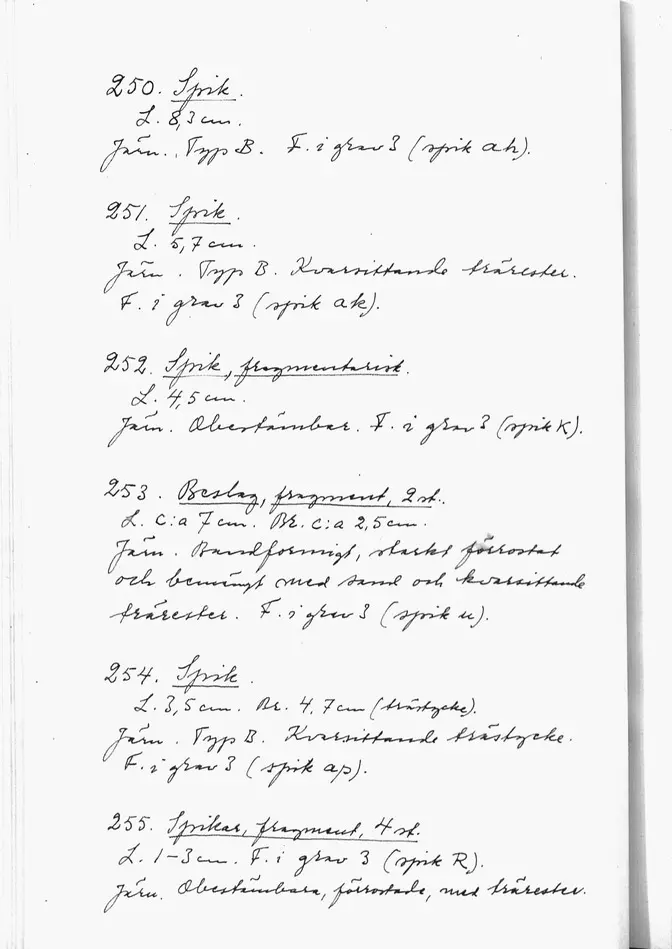 250. Spik.
L. 8,3 cm.
Järn. Typ B. F. i grav 3 (spik ah).
251. Spik.
L. 5,7 cm.
Järn. Typ B. Kvarsittande trärester.
F. i grav 3 (spik ak).
252. Spik, fragmentarisk.
L. 4,5 cm.
Järn. Obestämbar. F. i grav 3 (spik K).
253. Beslag, fragment, 2 st.
L. c:a 7 cm. Br. c:a 2,5 cm.
Järn. Bandformigt, starkt förrostat
och bemängt med sand och kvarsittande
trärester. F. i grav 3 (spik u).
254. Spik.
L. 3,5 cm. Br. 4,7 cm (trästycke).
Järn. Typ B. Kvarsittande trästycke.
F. i grav 3 (spik ap).
255. Spikar, fragment, 4 st.
L. 1-3 cm. F. i grav 3 (spik R).
Järn. Obestämbara, förrostade, med trärester.